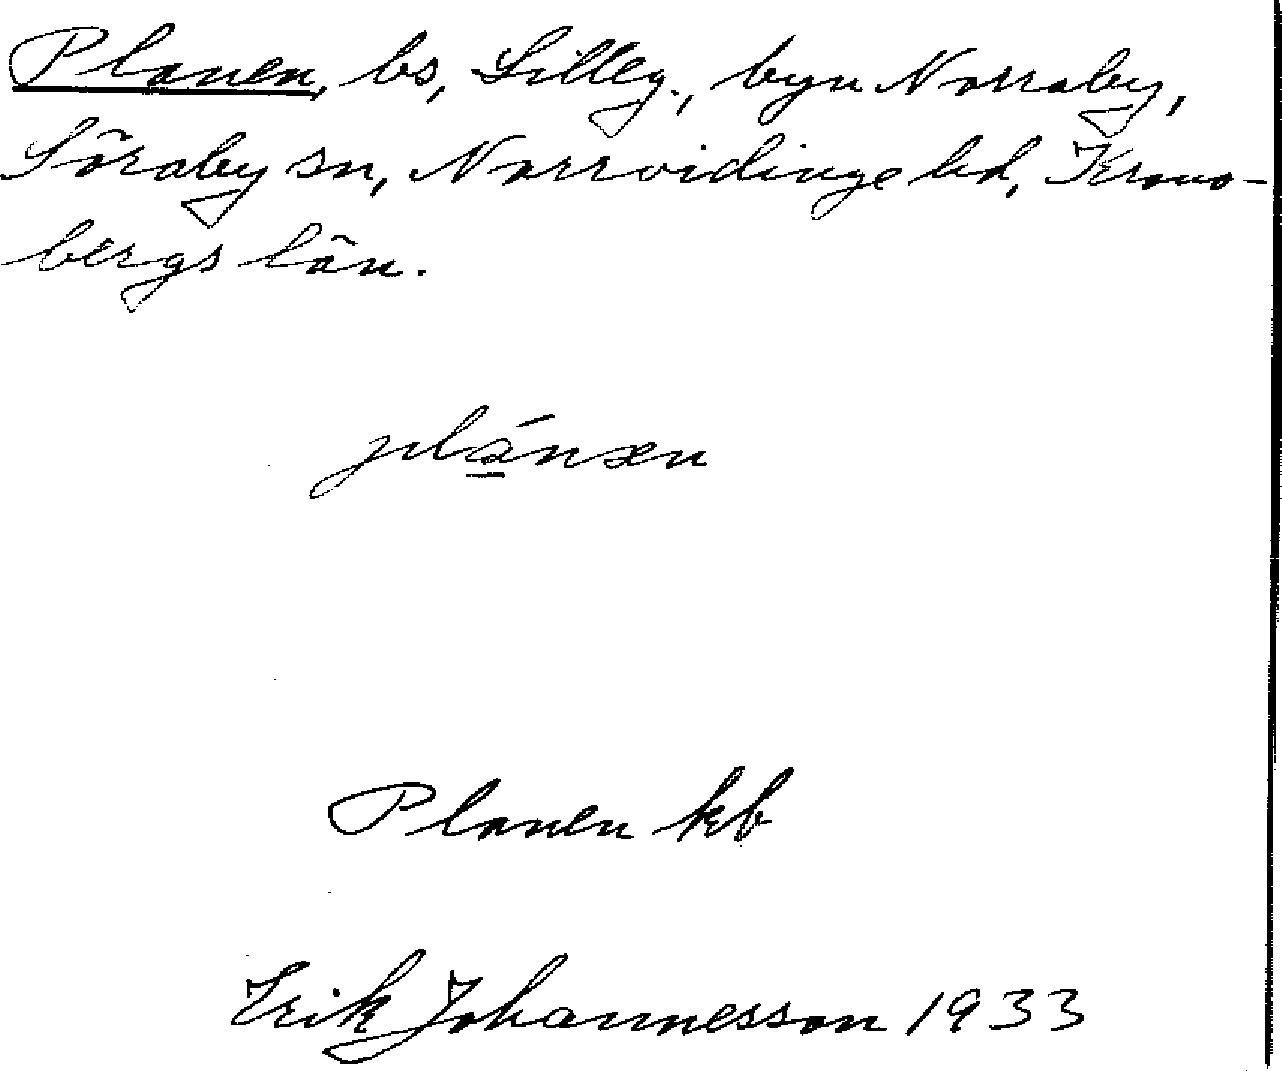 Planen, bs, Lilleg., byn Norraby,
Söraby sn, Norrvidinge hd, Krono-
bergs län.
plánæn
Planen kb
Erik Johannesson 1933